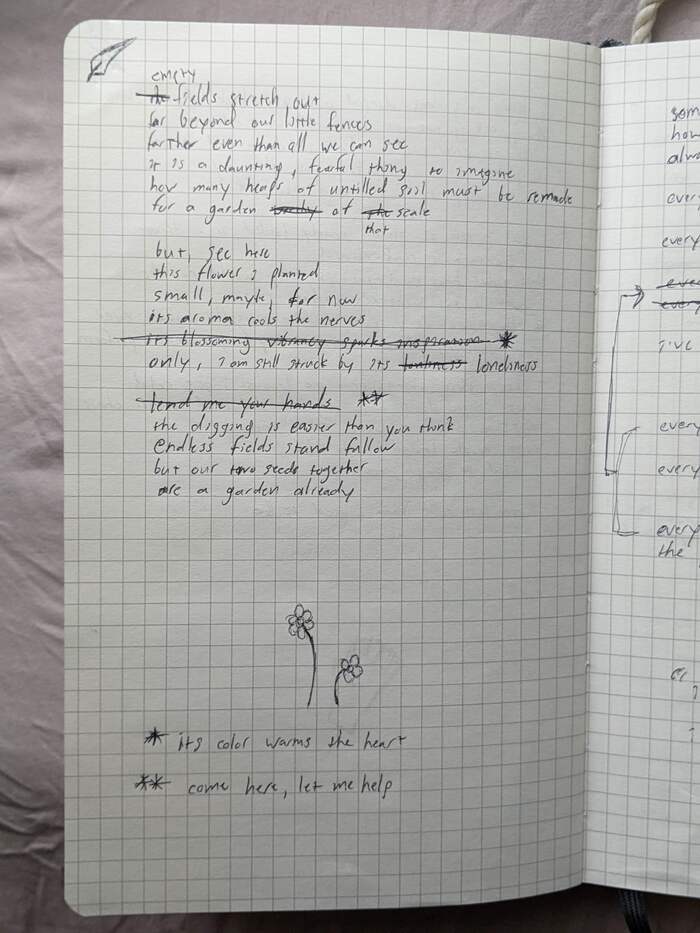 empty
the fields stretch out
far beyond our little fences
farther even than all we can see
it is a daunting, fearful thing to imagine
how many heaps of untilled soil must be remade
for a garden of the scale
that
but, see here
this flower i planted
small, maybe, for now
its aroma cools the nerves
its blossoming vibrancy sparks inspiration *
only, i am still struck by its loneliness
lend me your hands **
the digging is easier than you think
endless fields stand fallow
but our two seeds together
are a garden already
* its color warms the heart
** come here, let me help
som
how
alwa
every
every
every
every
i've
every
every
every
the